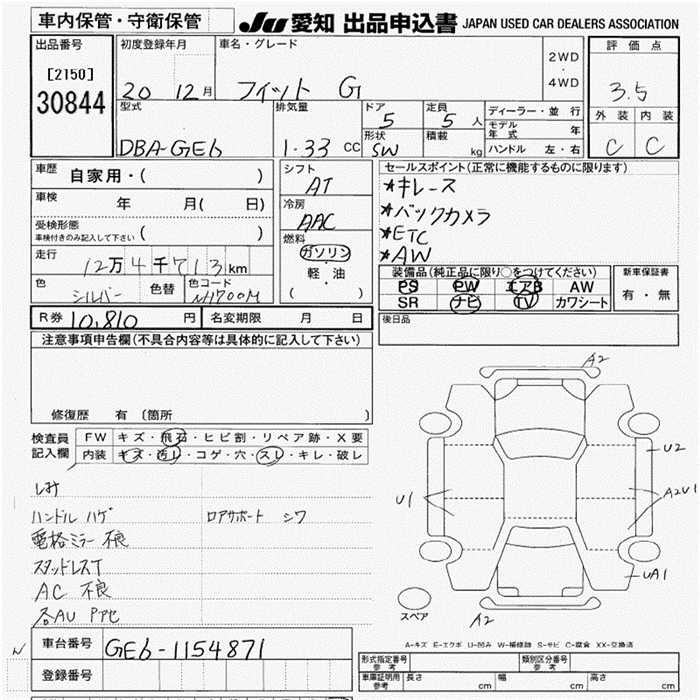 車内保管・守衛保管
JU 愛知 出品申込書 JAPAN USED CAR DEALERS ASSOCIATION
出品番号
[2150]
30844
初度登録年月
20 12月
車名・グレード
フィット G
2WD
・
4WD
評価点
3.5
外装 内装
C C
型式
DBA-GE6
排気量
1.33 CC
ドア
5
定員
5人
形状
SW
積載
kg
ディーラー・並行
モデル年式 年
ハンドル 左・右
車歴 自家用・( )
車検 年 月( 日)
受検形態
車検付きのみ記入して下さい ( )
走行
12万4千713km
色
シルバー
色替
色コード
NH700M
シフト
AT
冷房
AAC
燃料
ガソリン
・
軽・油
( )
セールスポイント(正常に機能するものに限ります)
*キレース
*バックカメラ
*ETC
*AW
装備品(純正品に限り○をつけてください)
PS PW エアB AW
SR ナビ TV カワシート
新車保証書
有・無
R券 10,810円
名変期限 月 日
後日品
注意事項申告欄(不具合内容等は具体的に記入して下さい)
修復歴 有 〔箇所 〕
検査員記入欄
FW キズ・飛石・ヒビ割・リペア跡・X要
内装 キズ・汚レ・コゲ・穴・スレ・キレ・破レ
シミ
ハンドル ハゲ ロアサポート シワ
電格ミラー 不良
スタッドレスT
AC 不良
各AU Pアセ
A2
U2
U1
A2U1
UA1
スペア
A2
A-キズ E-エクボ U-凹み W-補修跡 S-サビ C-腐食 XX-交換済
N
車台番号 GE6-1154871
登録番号
形式指定番号
参考
類別区分番号
参考
車庫証明用
参考
長さ cm
幅 cm
高さ cm